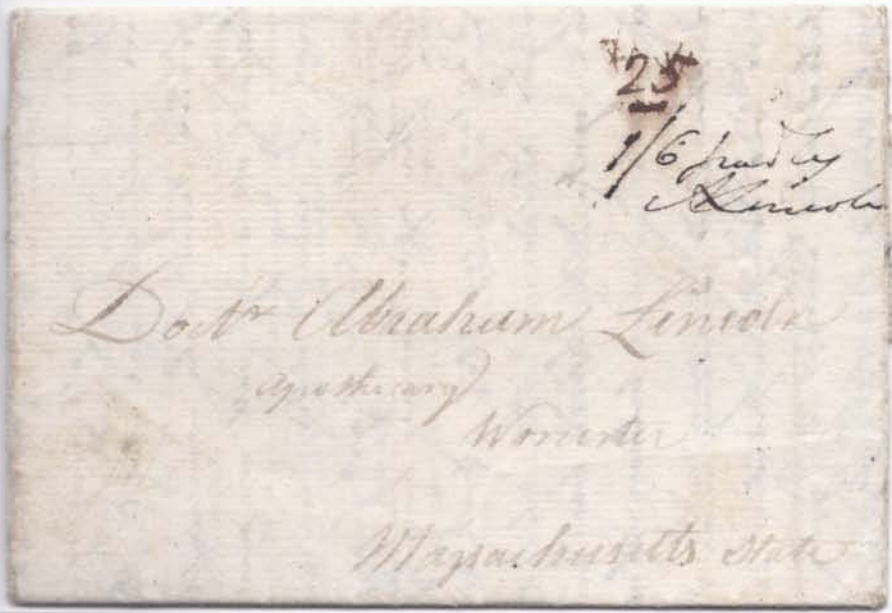 25
1/6 paid by
A Lincoln
Doctr Abraham Lincoln
apothecary
Worcester
Massachusetts State